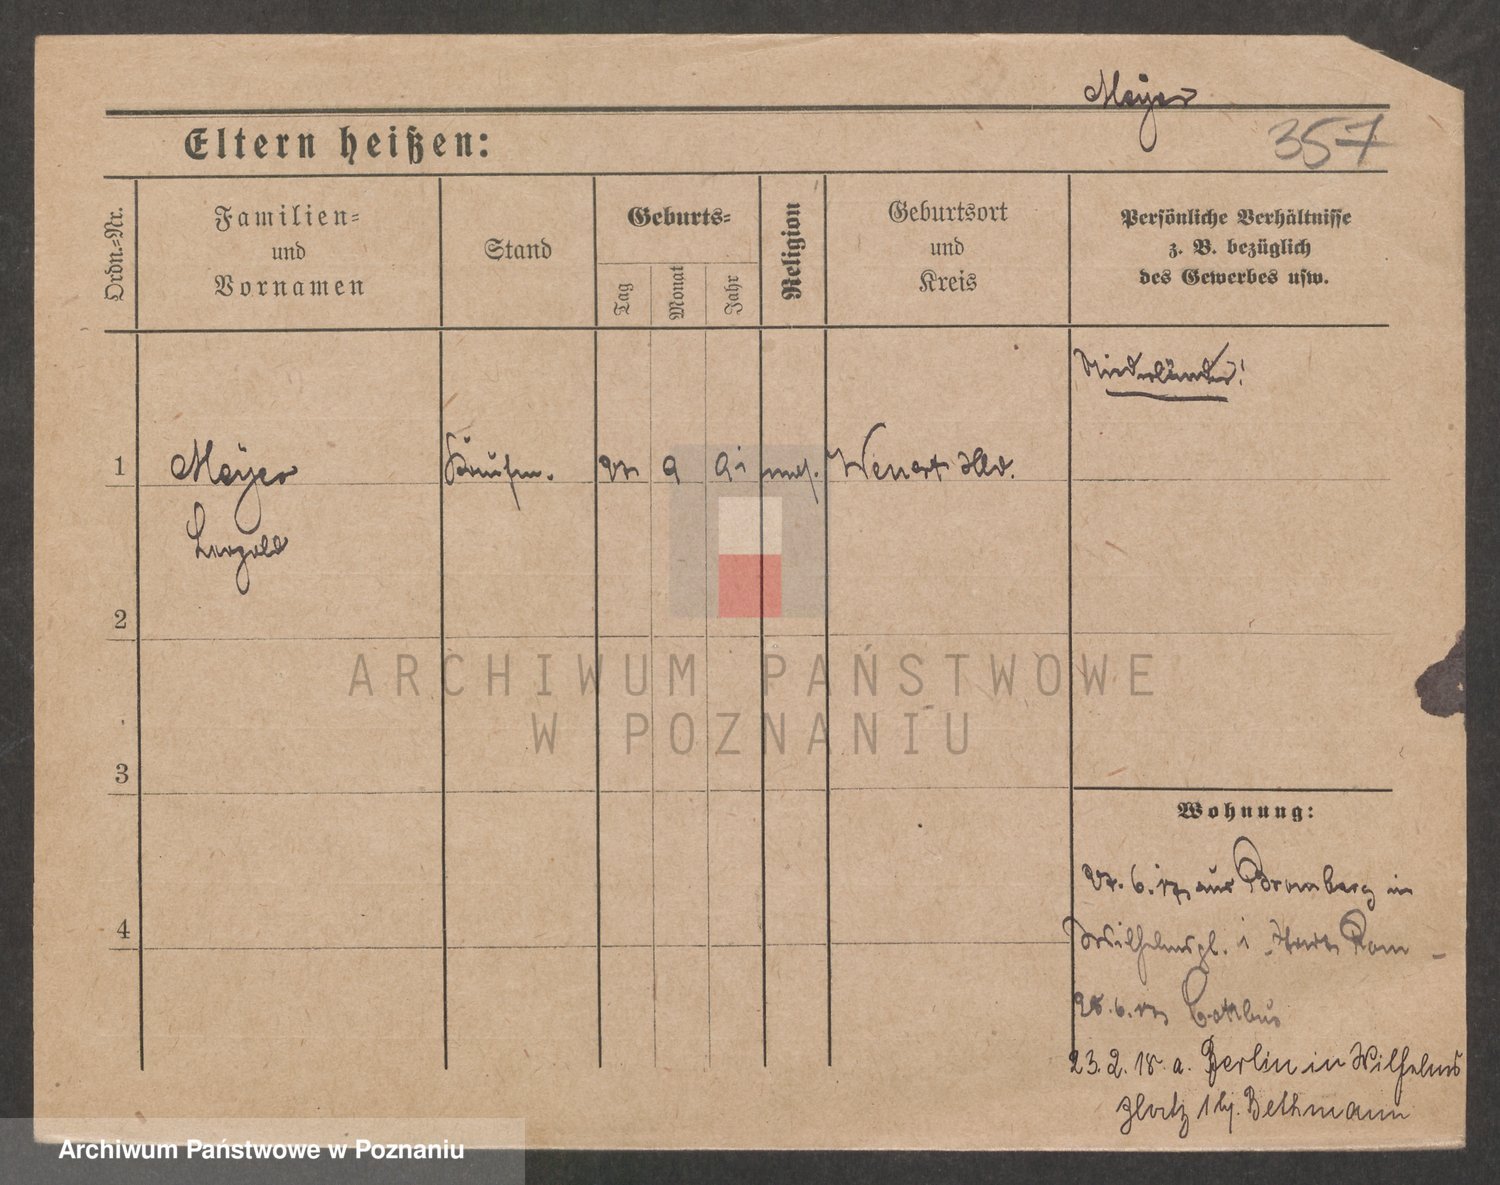 Meyer
357
Eltern heißen:
Ordn.=Nr.
Familien=
und
Vornamen
Stand
Geburts=
Tag
Monat
Jahr
Religion
Geburtsort
und
Kreis
Persönliche Verhältnisse
z. B. bezüglich
des Gewerbes usw.
Niederländer!
1
Meyer
Kaufm.
9
mos.
Leopold
2
ARCHIWUM PAŃSTWOWE
W POZNANIU
3
Wohnung:
27. 6. 17 aus Bromberg in
Wilhelmspl. 1
4
28. 6. 17 Cottbus
23. 2. 18 a. Berlin in Wilhelms
platz 1 bj. Bethmann
Archiwum Państwowe w Poznaniu